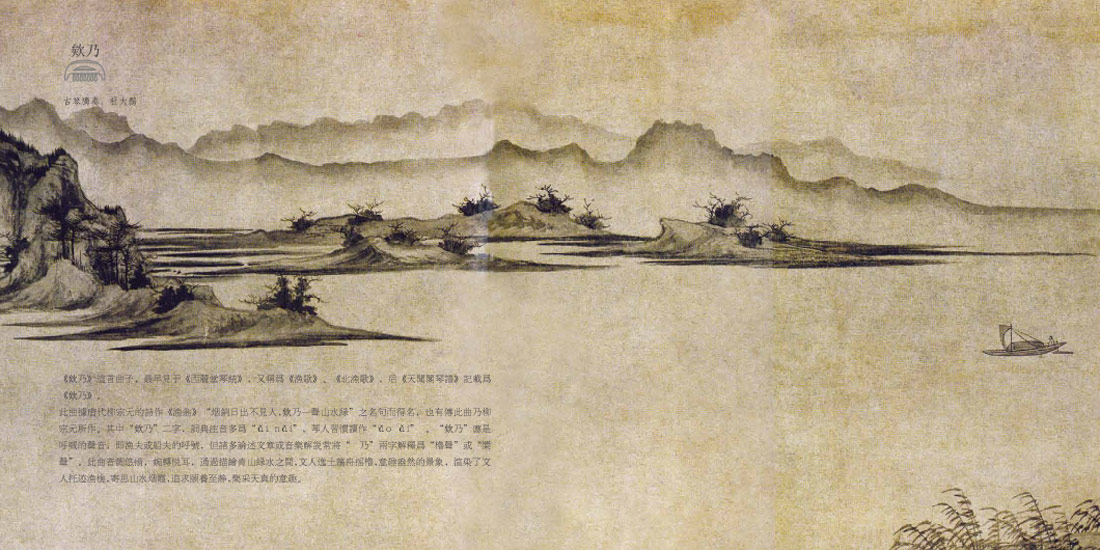 欸乃
古琴演奏
《欸乃》這首曲子，最早見于《西麓堂琴統》，又稱爲《漁歌》、《北漁歌》，后《天聞閣琴譜》記載爲
《欸乃》。
此曲據唐代柳宗元的詩作《漁翁》“烟銷日出不見人,欸乃一聲山水緑”之名句而得名，也有傳此曲乃柳
宗元所作。其中“欸乃”二字，詞典注音多爲“ǎi nǎi”，琴人習慣讀作“ǎo ǎi”，“欸乃”應是
呼喊的聲音，即漁夫或船夫的呼號，但諸多論述文章或音樂解説常將“ 乃”兩字解釋爲“櫓聲”或“槳
聲”。此曲音韵悠揚，婉轉悦耳，通過描繪青山緑水之間,文人逸士蕩舟摇櫓,意趣盎然的景象，渲染了文
人托迹漁樵,寄思山水烟霞,追求頤養至静,樂采天真的意趣。